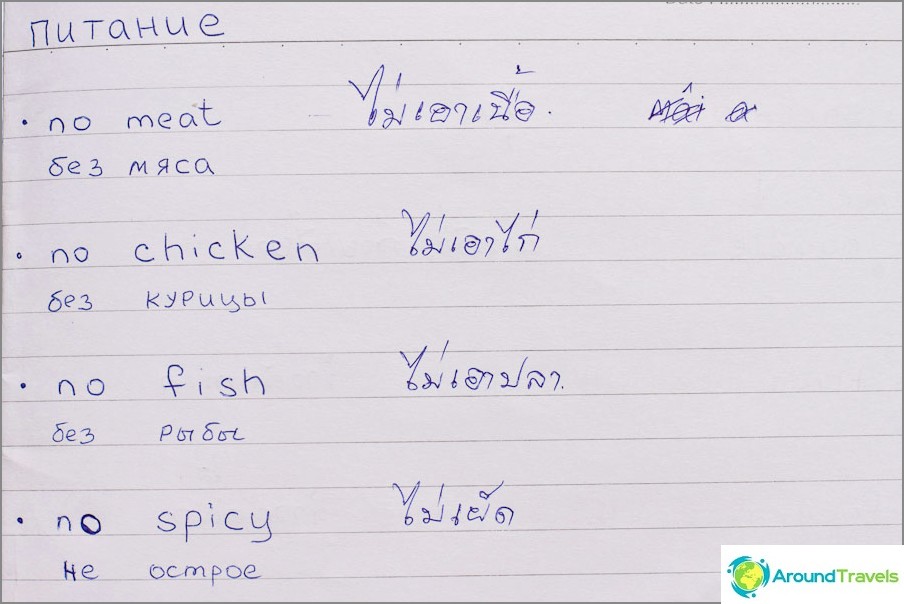 питание
• no meat ไม่เอาเนื้อ.
без мяса
• no chicken ไม่เอาไก่
без курицы
• no fish ไม่เอาปลา.
без рыбы
• no spicy ไม่เผ็ด
не острое
AroundTravels